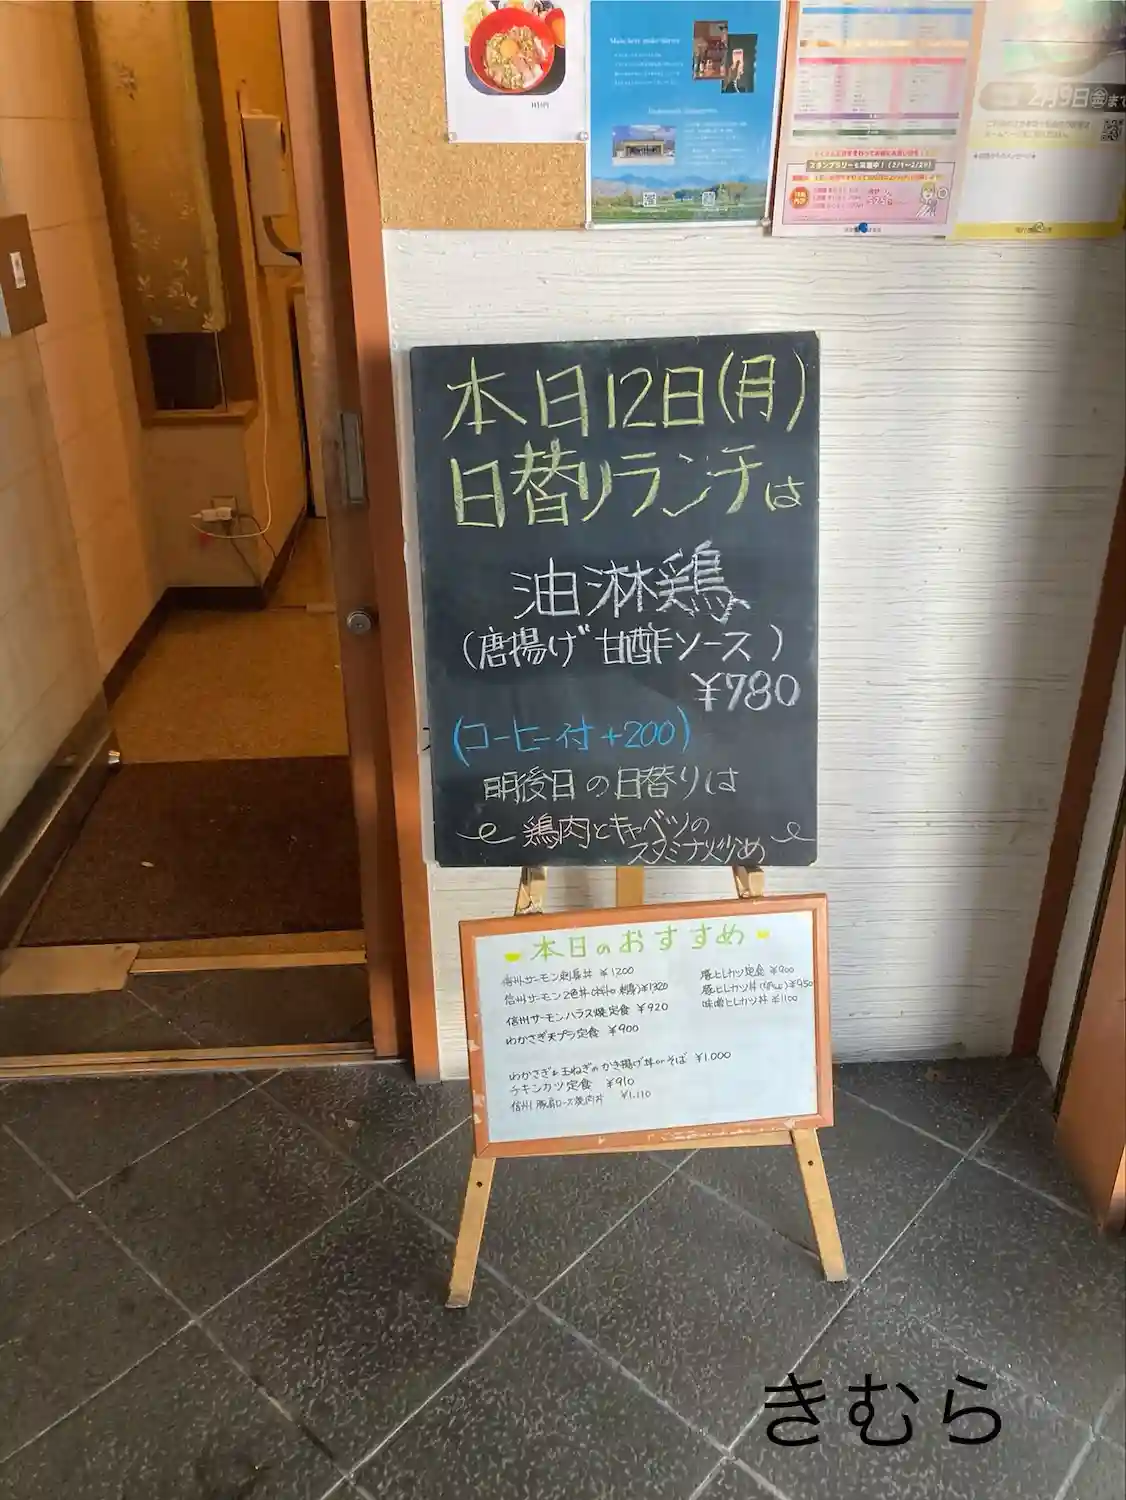 ¥780
2月9日㊎まで
スタンプラリーも実施中！(2/1～2/29)
本日12日(月)
日替りランチは
油淋鶏
(唐揚げ 甘酢ソース)
¥780
(コーヒー付 +200)
明後日の日替りは
鶏肉とキャベツの
スタミナ炒め
本日のおすすめ
信州サーモン刺身丼 ¥1200
信州サーモン2色丼 ¥1320
信州サーモンハラス焼定食 ¥920
わかさぎ天プラ定食 ¥900
わかさぎと玉ねぎのかき揚げ丼orそば ¥1.000
チキンカツ定食 ¥910
信州豚肩ロース焼肉丼 ¥1.110
豚ヒレカツ定食 ¥900
豚ヒレカツ丼 ¥950
味噌ヒレカツ丼 ¥1100
きむら